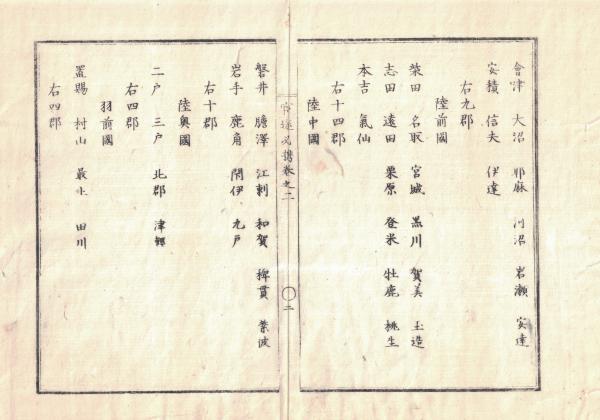 會津 大沼 耶麻 河沼 岩瀬 安達
安積 信夫 伊達
右九郡
陸前國
柴田 名取 宮城 黒川 賀美 玉造
志田 遠田 栗原 登米 牡鹿 桃生
本吉 氣仙
右十四郡
陸中國
卷之二
二
磐井 膽澤 江刺 和賀 稗貫 紫波
岩手 鹿角 閉伊 九戸
右十郡
陸奥國
二戸 三戸 北郡 津輕
右四郡
羽前國
置賜 村山 最上 田川
右四郡